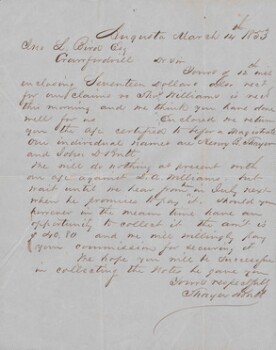 Augusta March 14th 1853
Jno L. Bird Esq
Crawfordvill
Dear Sir
Yours of 12th
enclosing Seventeen Dollars
for our claims vs Thos Williams is recd
this morning and we think you have done
well for us Enclosed we return
you the acc certified to before a Magistrate
Our individual names are Thayer
and John
We will do nothing at present with
our acc against Williams but
wait until we hear from in July next
when he promises to pay it. Should you
however in the meann time have an
opportunity to collect it the amt is
$40.80 and we will willingly pay
your commission for securing it
We hope you will be successful
in collecting the Notes he gave you
Yours respectfully
Thayer